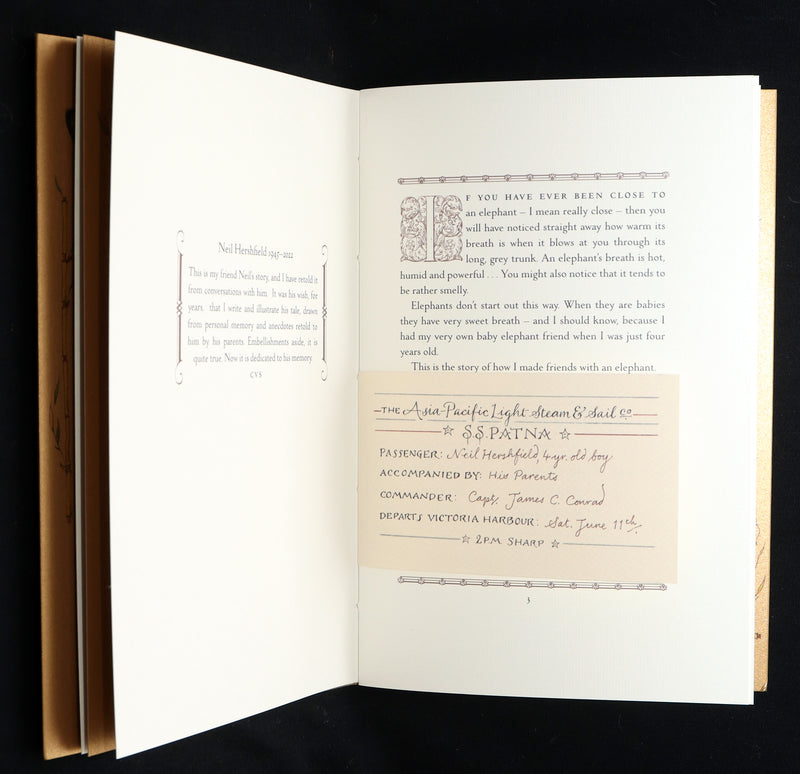 Neil Hershfield 1945–2012
This is my friend Neil's story, and I have retold it
from conversations with him. It was his wish, for
years, that I write and illustrate his tale, drawn
from personal memory and anecdotes retold to
him by his parents. Embellishments aside, it is
quite true. Now it is dedicated to his memory.
CVS
IF YOU HAVE EVER BEEN CLOSE TO
an elephant – I mean really close – then you
will have noticed straight away how warm its
breath is when it blows at you through its
long, grey trunk. An elephant's breath is hot,
humid and powerful . . . You might also notice that it tends to
be rather smelly.
Elephants don't start out this way. When they are babies
they have very sweet breath – and I should know, because I
had my very own baby elephant friend when I was just four
years old.
This is the story of how I made friends with an elephant.
THE Asia-Pacific Light Steam & Sail Co
S.S. PATNA
PASSENGER: Neil Hershfield, 4 yr. old boy
ACCOMPANIED BY: His Parents
COMMANDER: Capt. James C. Conrad
DEPARTS VICTORIA HARBOUR: Sat. June 11th.
2 P.M. SHARP
3